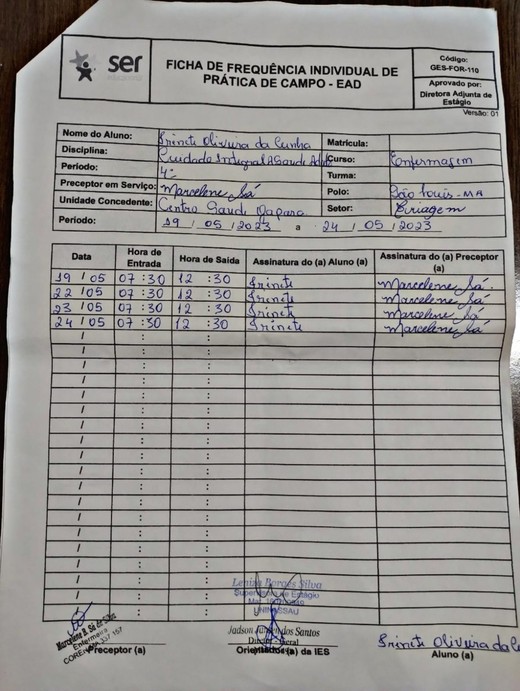 ser
FICHA DE FREQUÊNCIA INDIVIDUAL DE
PRÁTICA DE CAMPO - EAD
Código:
GES-FOR-110
Aprovado por:
Diretora Adjunta de
Estágio
Versão: 01
Nome do Aluno: Irinete Oliveira da Cunha Matrícula:
Disciplina: Cuidado Integral A Saude Adul Curso: Enfermagem
Período: 4º Turma:
Preceptor em Serviço: Marcelene Sá Polo: São Louis - MA
Unidade Concedente: Centro Saude Setor: Triagem
Período: 19 / 05 / 2023 a 24 / 05 / 2023
Data Hora de Entrada Hora de Saída Assinatura do (a) Aluno (a) Assinatura do (a) Preceptor (a)
19 / 05 07 : 30 12 : 30 Irinete Marcelene Sá.
22 / 05 07 : 30 12 : 30 Irinete Marcelene Sá
23 / 05 07 : 30 12 : 30 Irinete Marcelene Sá
24 / 05 07 : 30 12 : 30 Irinete Marcelene Sá
Lenira Borges Silva
Supervisora de Estágio
UNINASSAU
Marcelene B. Sá da Silva
Enfermeira
Jadson dos Santos
Preceptor (a)
Orientador(a) da IES
Irinete Oliveira da
Aluno (a)